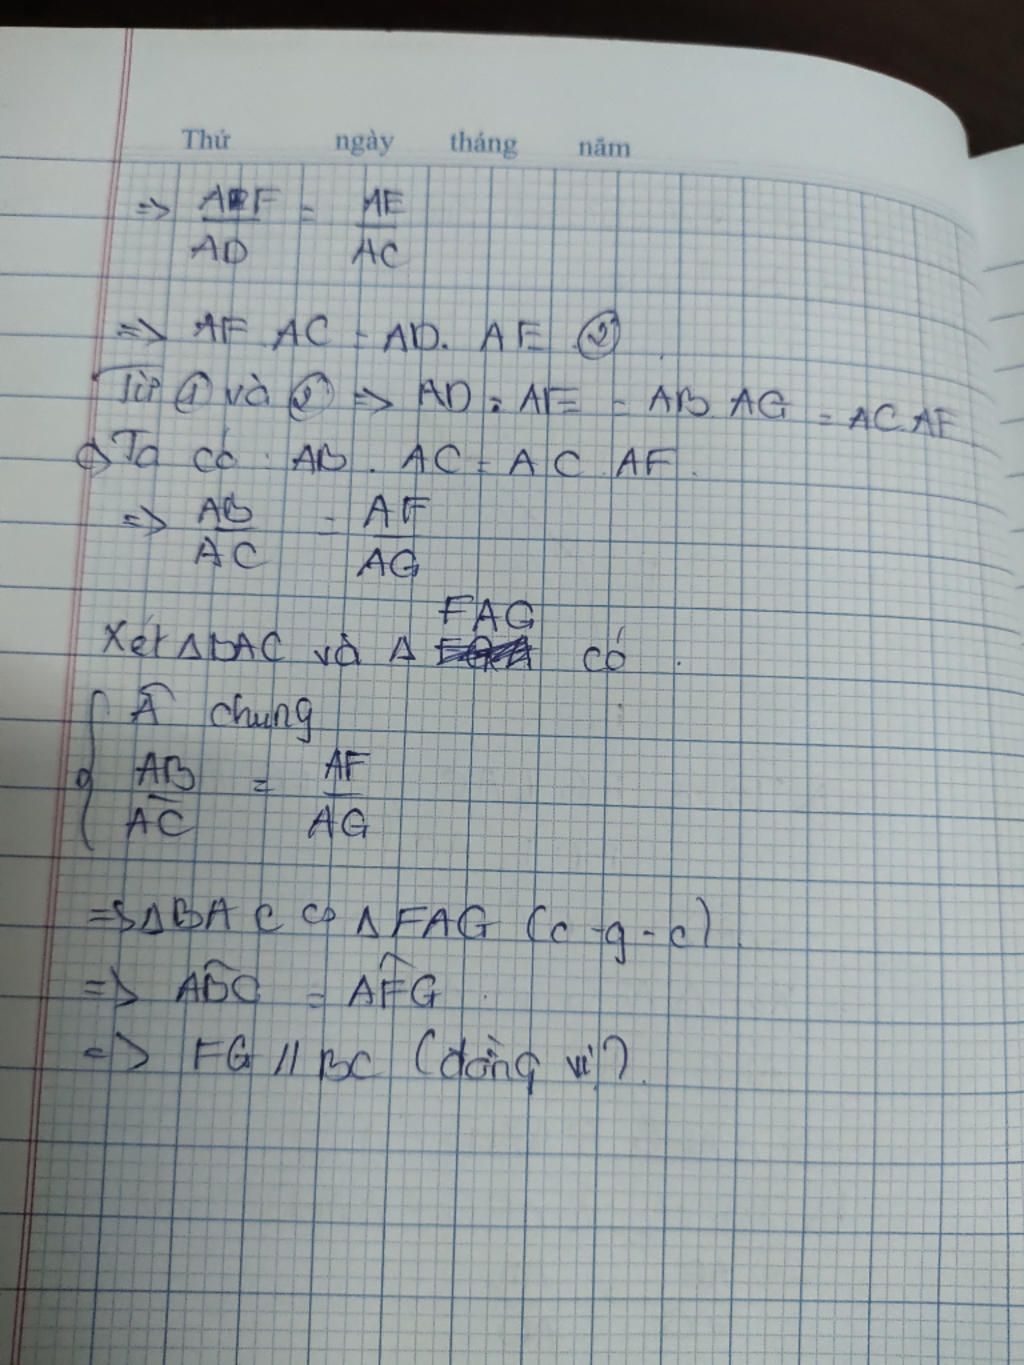 Thứ ngày tháng năm
=> AF/AD = AE/AC
=> AF AC = AD. AE ②
Từ ① và ② => AD . AE = AB AG = AC AF
Ta có: AB . AC = AC . AF
=> AB/AC = AF/AG
FAG
Xét ΔBAC và Δ có
Â chung
AB/AC = AF/AG
=> ΔBAC ∽ ΔFAG (c-g-c)
=> ABC = AFG
=> FG // BC (đồng vị).